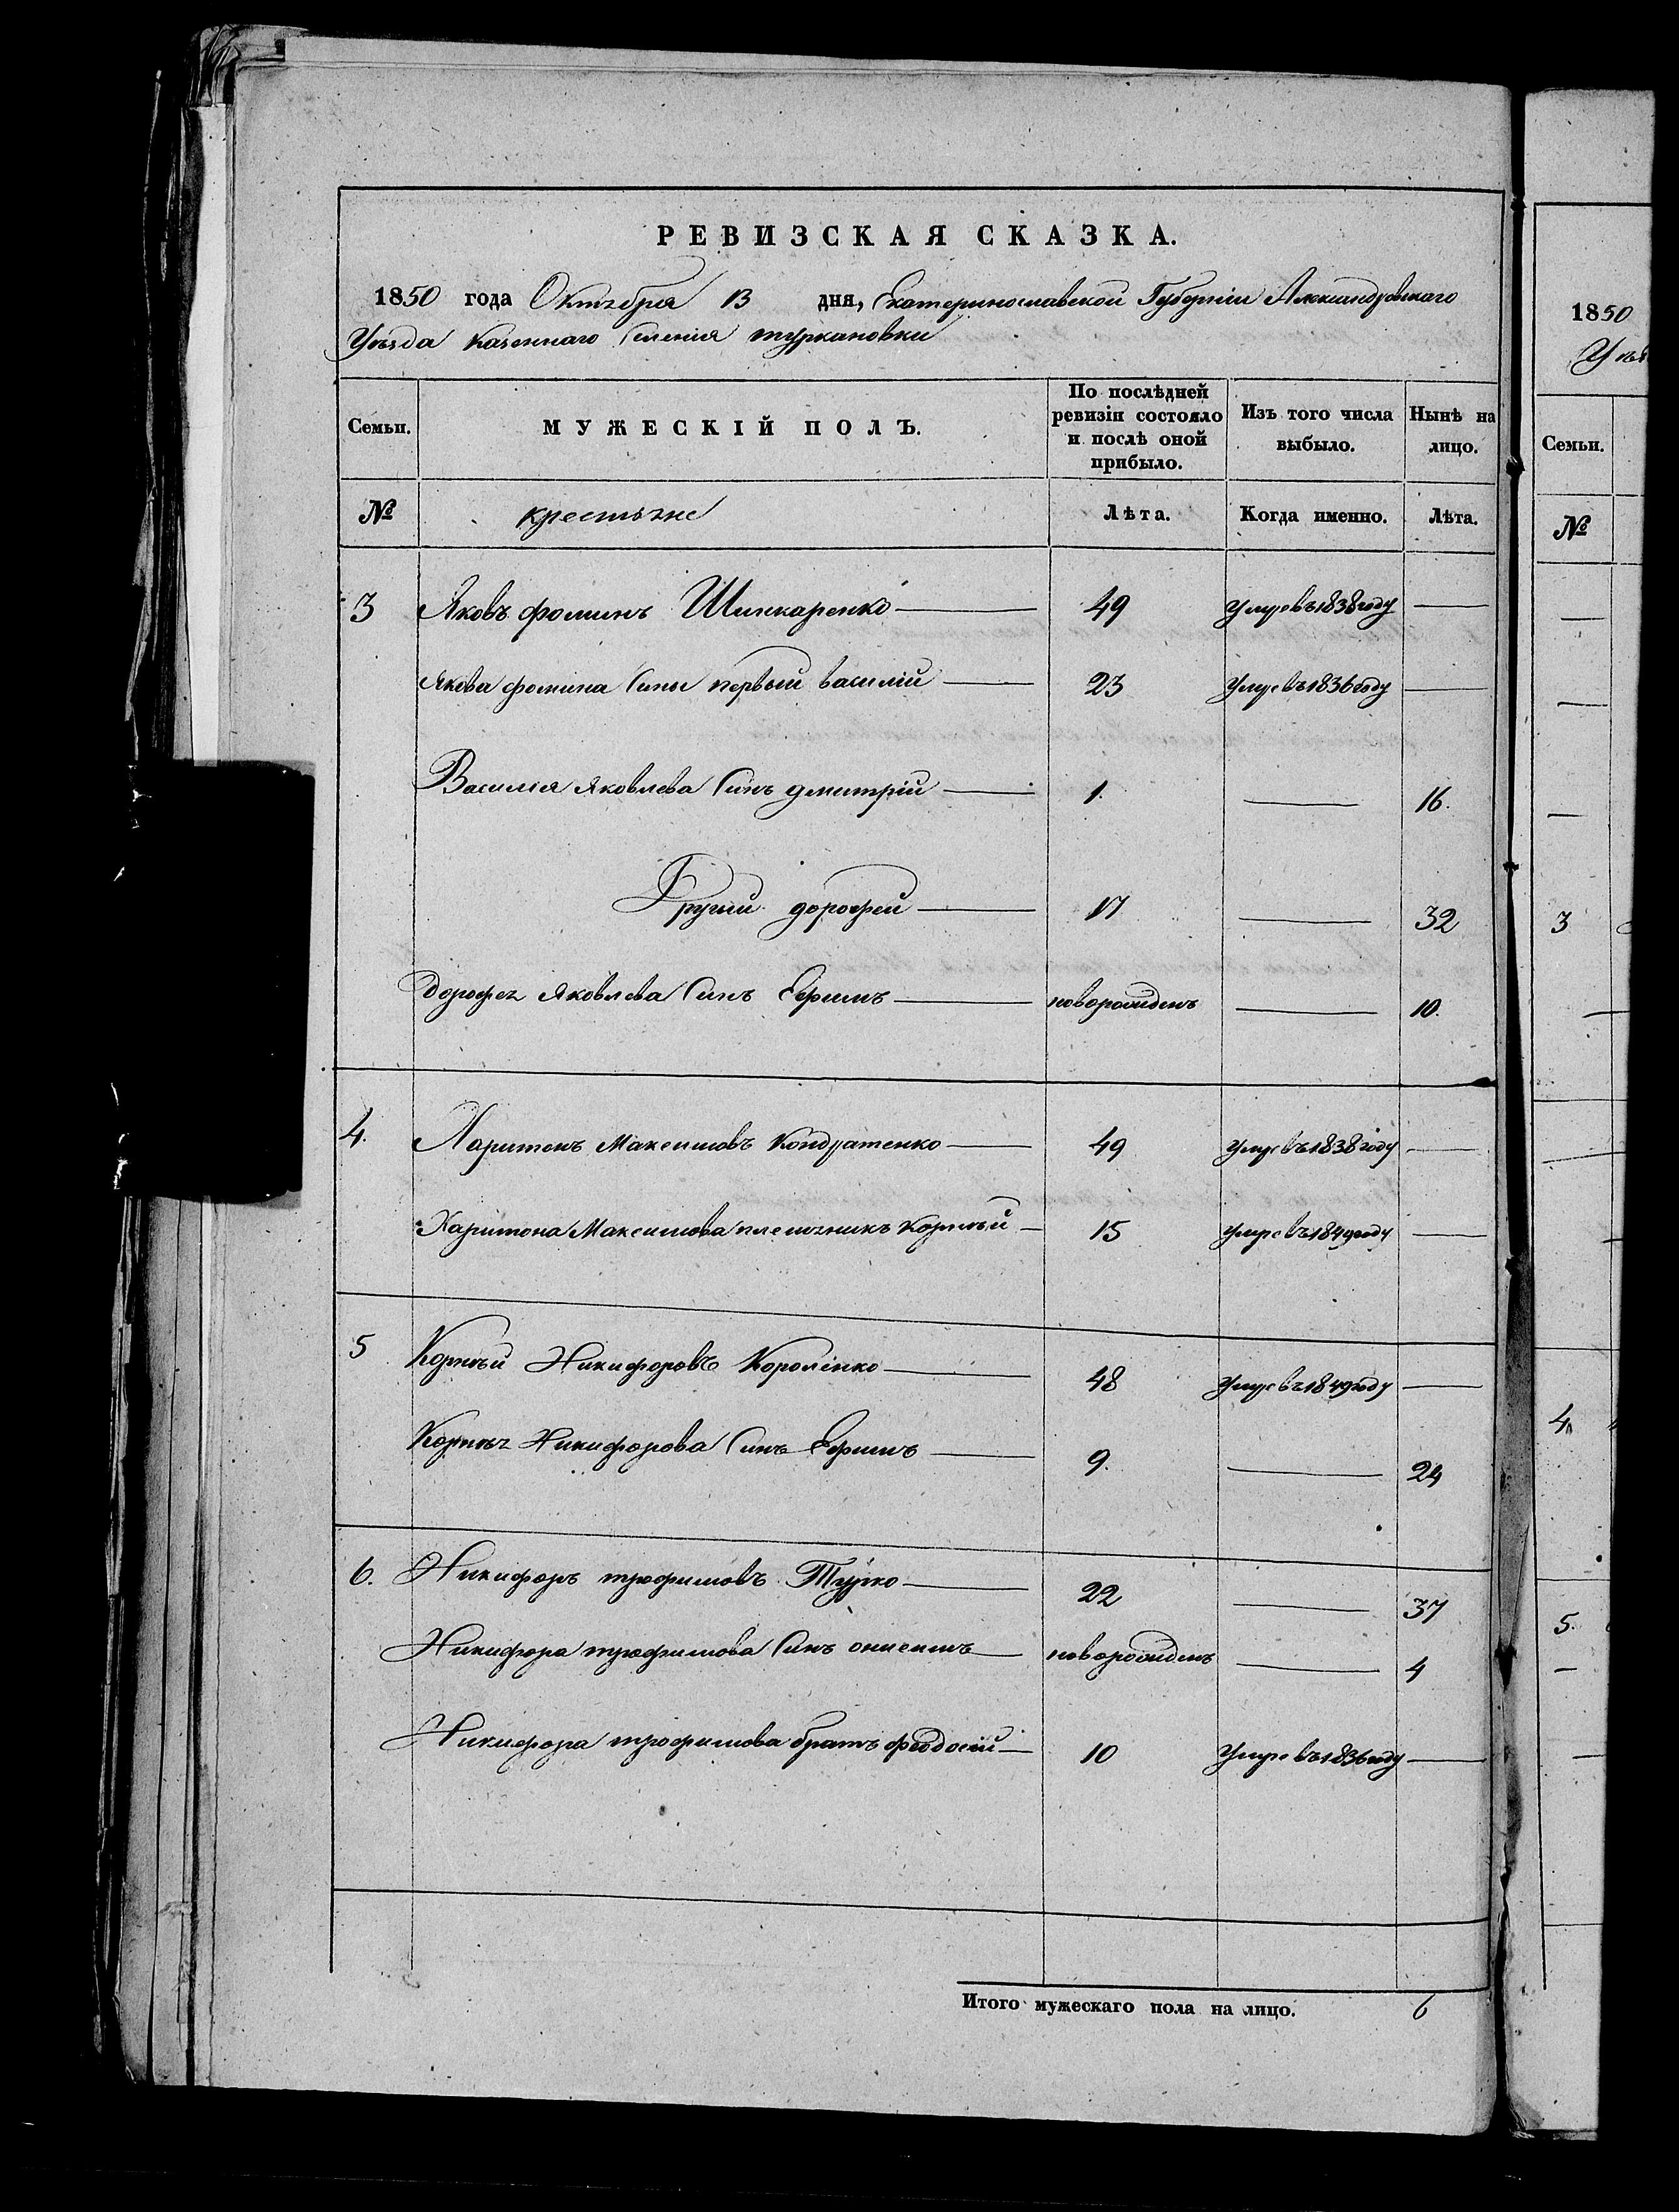 РЕВИЗСКАЯ СКАЗКА.
1850 года Октября 13 дня, Екатеринославской Губерніи Александровскаго
Уѣзда казеннаго Селенія туркановки
Семьи. МУЖЕСКІЙ ПОЛЪ. По послѣдней ревизіи состояло и послѣ оной прибыло. Изъ того числа выбыло. Нынѣ на лицо.
№ крестьяне Лѣта. Когда именно. Лѣта.
3 Яковъ фоминъ Шинкаренко — 49 Умре въ 1838 году —
Якова фомина Сины первый василій — 23 Умре въ 1836 году —
Василія Яковлева Синъ дмитрій — 1. — 16.
Другий дорофей — 17 — 32
Дорофея Яковлева Синъ Ефимъ — новорожденъ — 10.
4. Харитонъ Максимовъ Кондратенко — 49 Умре въ 1838 году —
Харитона Максимова племяникъ Корнѣй — 15 Умре въ 1849 году —
5 Корнѣй Никифоровъ Короленко — 48 Умре въ 1849 году —
Корнѣя Никифорова Синъ Ефимъ — 9. — 24
6. Никифоръ трофимовъ Турко — 22 — 37
Никифора трофимова Синъ онисимъ — новорожденъ — 4
Никифора трофимова братъ феодосій — 10 Умре въ 1836 году —
Итого мужескаго пола на лицо. 6
1850
Уѣз
Семьи.
№
3
4.
5.